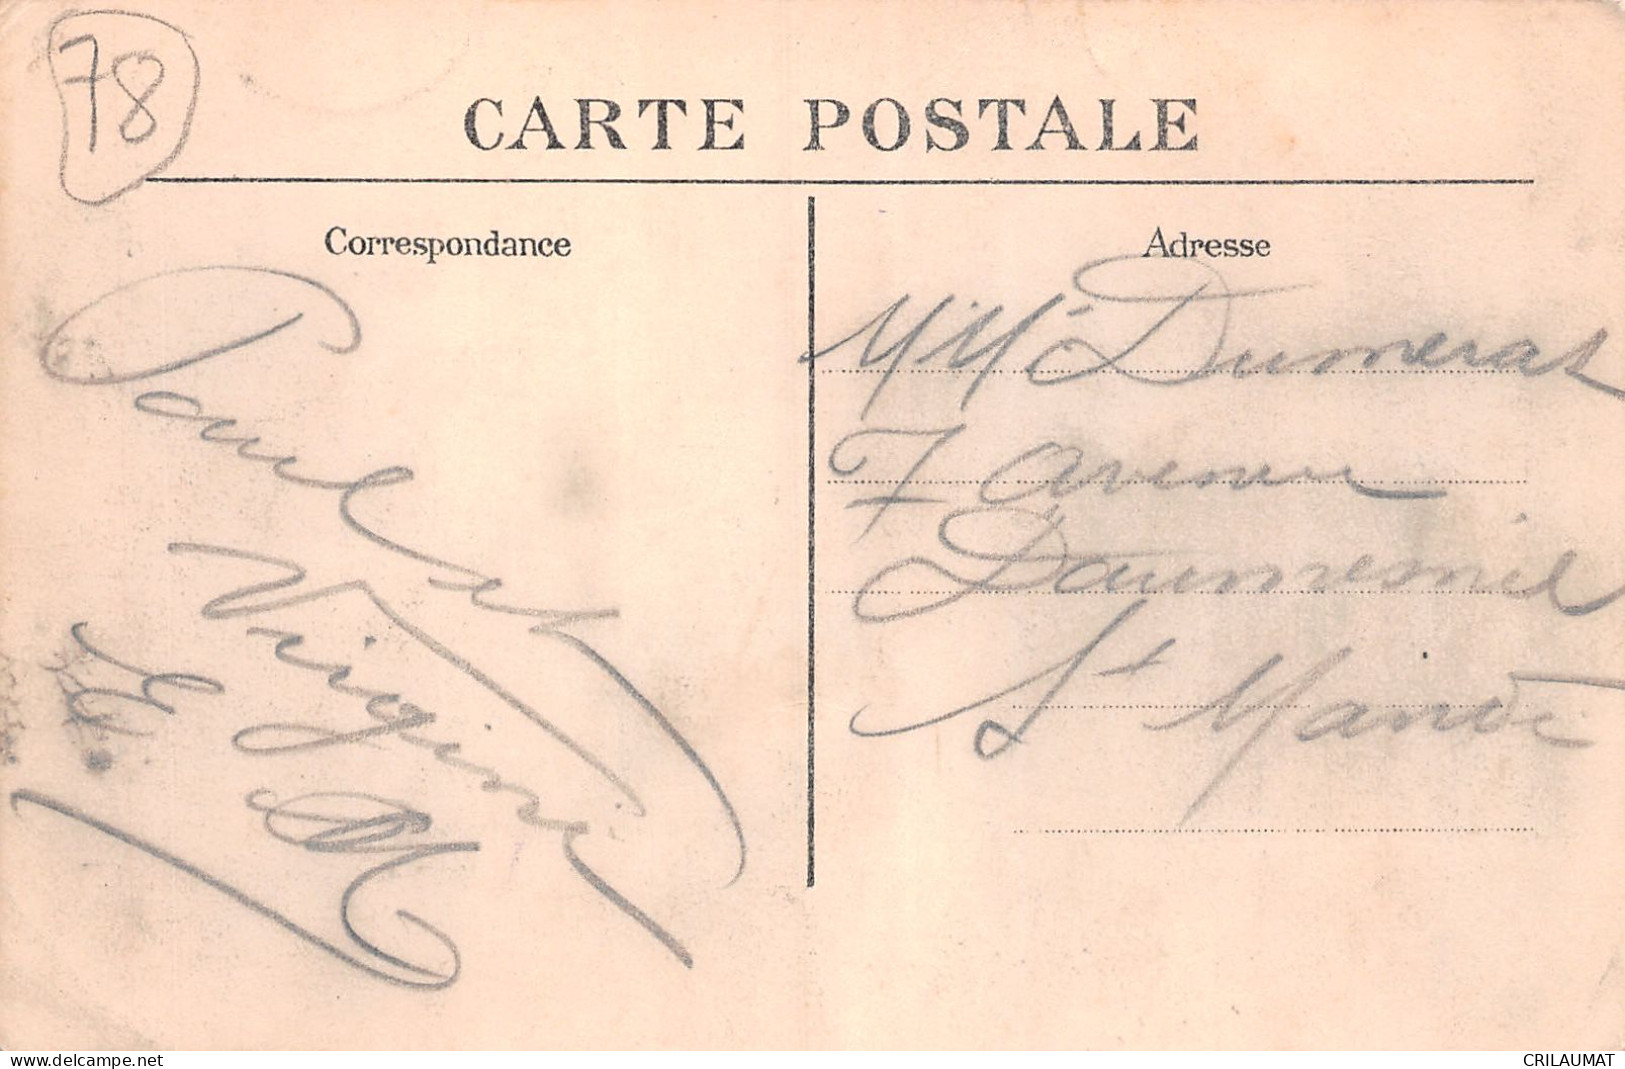 78
CARTE POSTALE
Correspondance
Adresse
Paul et
Virginie
M M Dumerat
7 avenue
Daumesnil
St Mandé
www.delcampe.net
CRILAUMAT